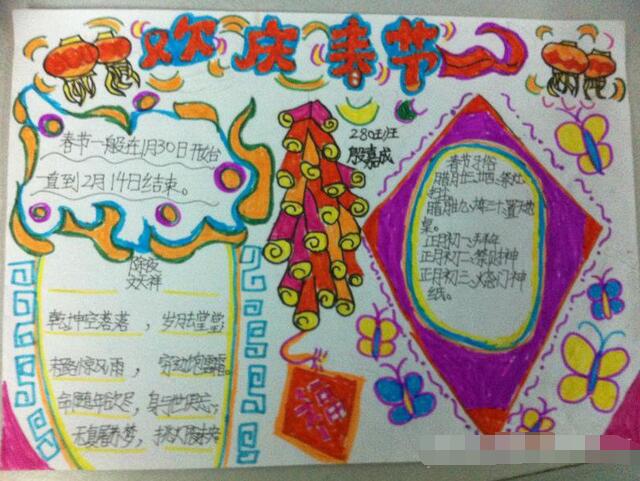 欢庆春节
春节一般在1月30日开始
直到2月14日结束。
除夜
文天祥
乾坤空落落，岁月去堂堂；
末路惊风雨，穷边饱雪霜。
命随年欲尽，身与世俱忘；
无复屠苏梦，挑灯夜未央。
殷嘉成
福
春节习俗
腊月廿三廿四、祭灶
扫尘
正月初一、拜年
正月初二、祭财神
正月初三、烧门神
纸。